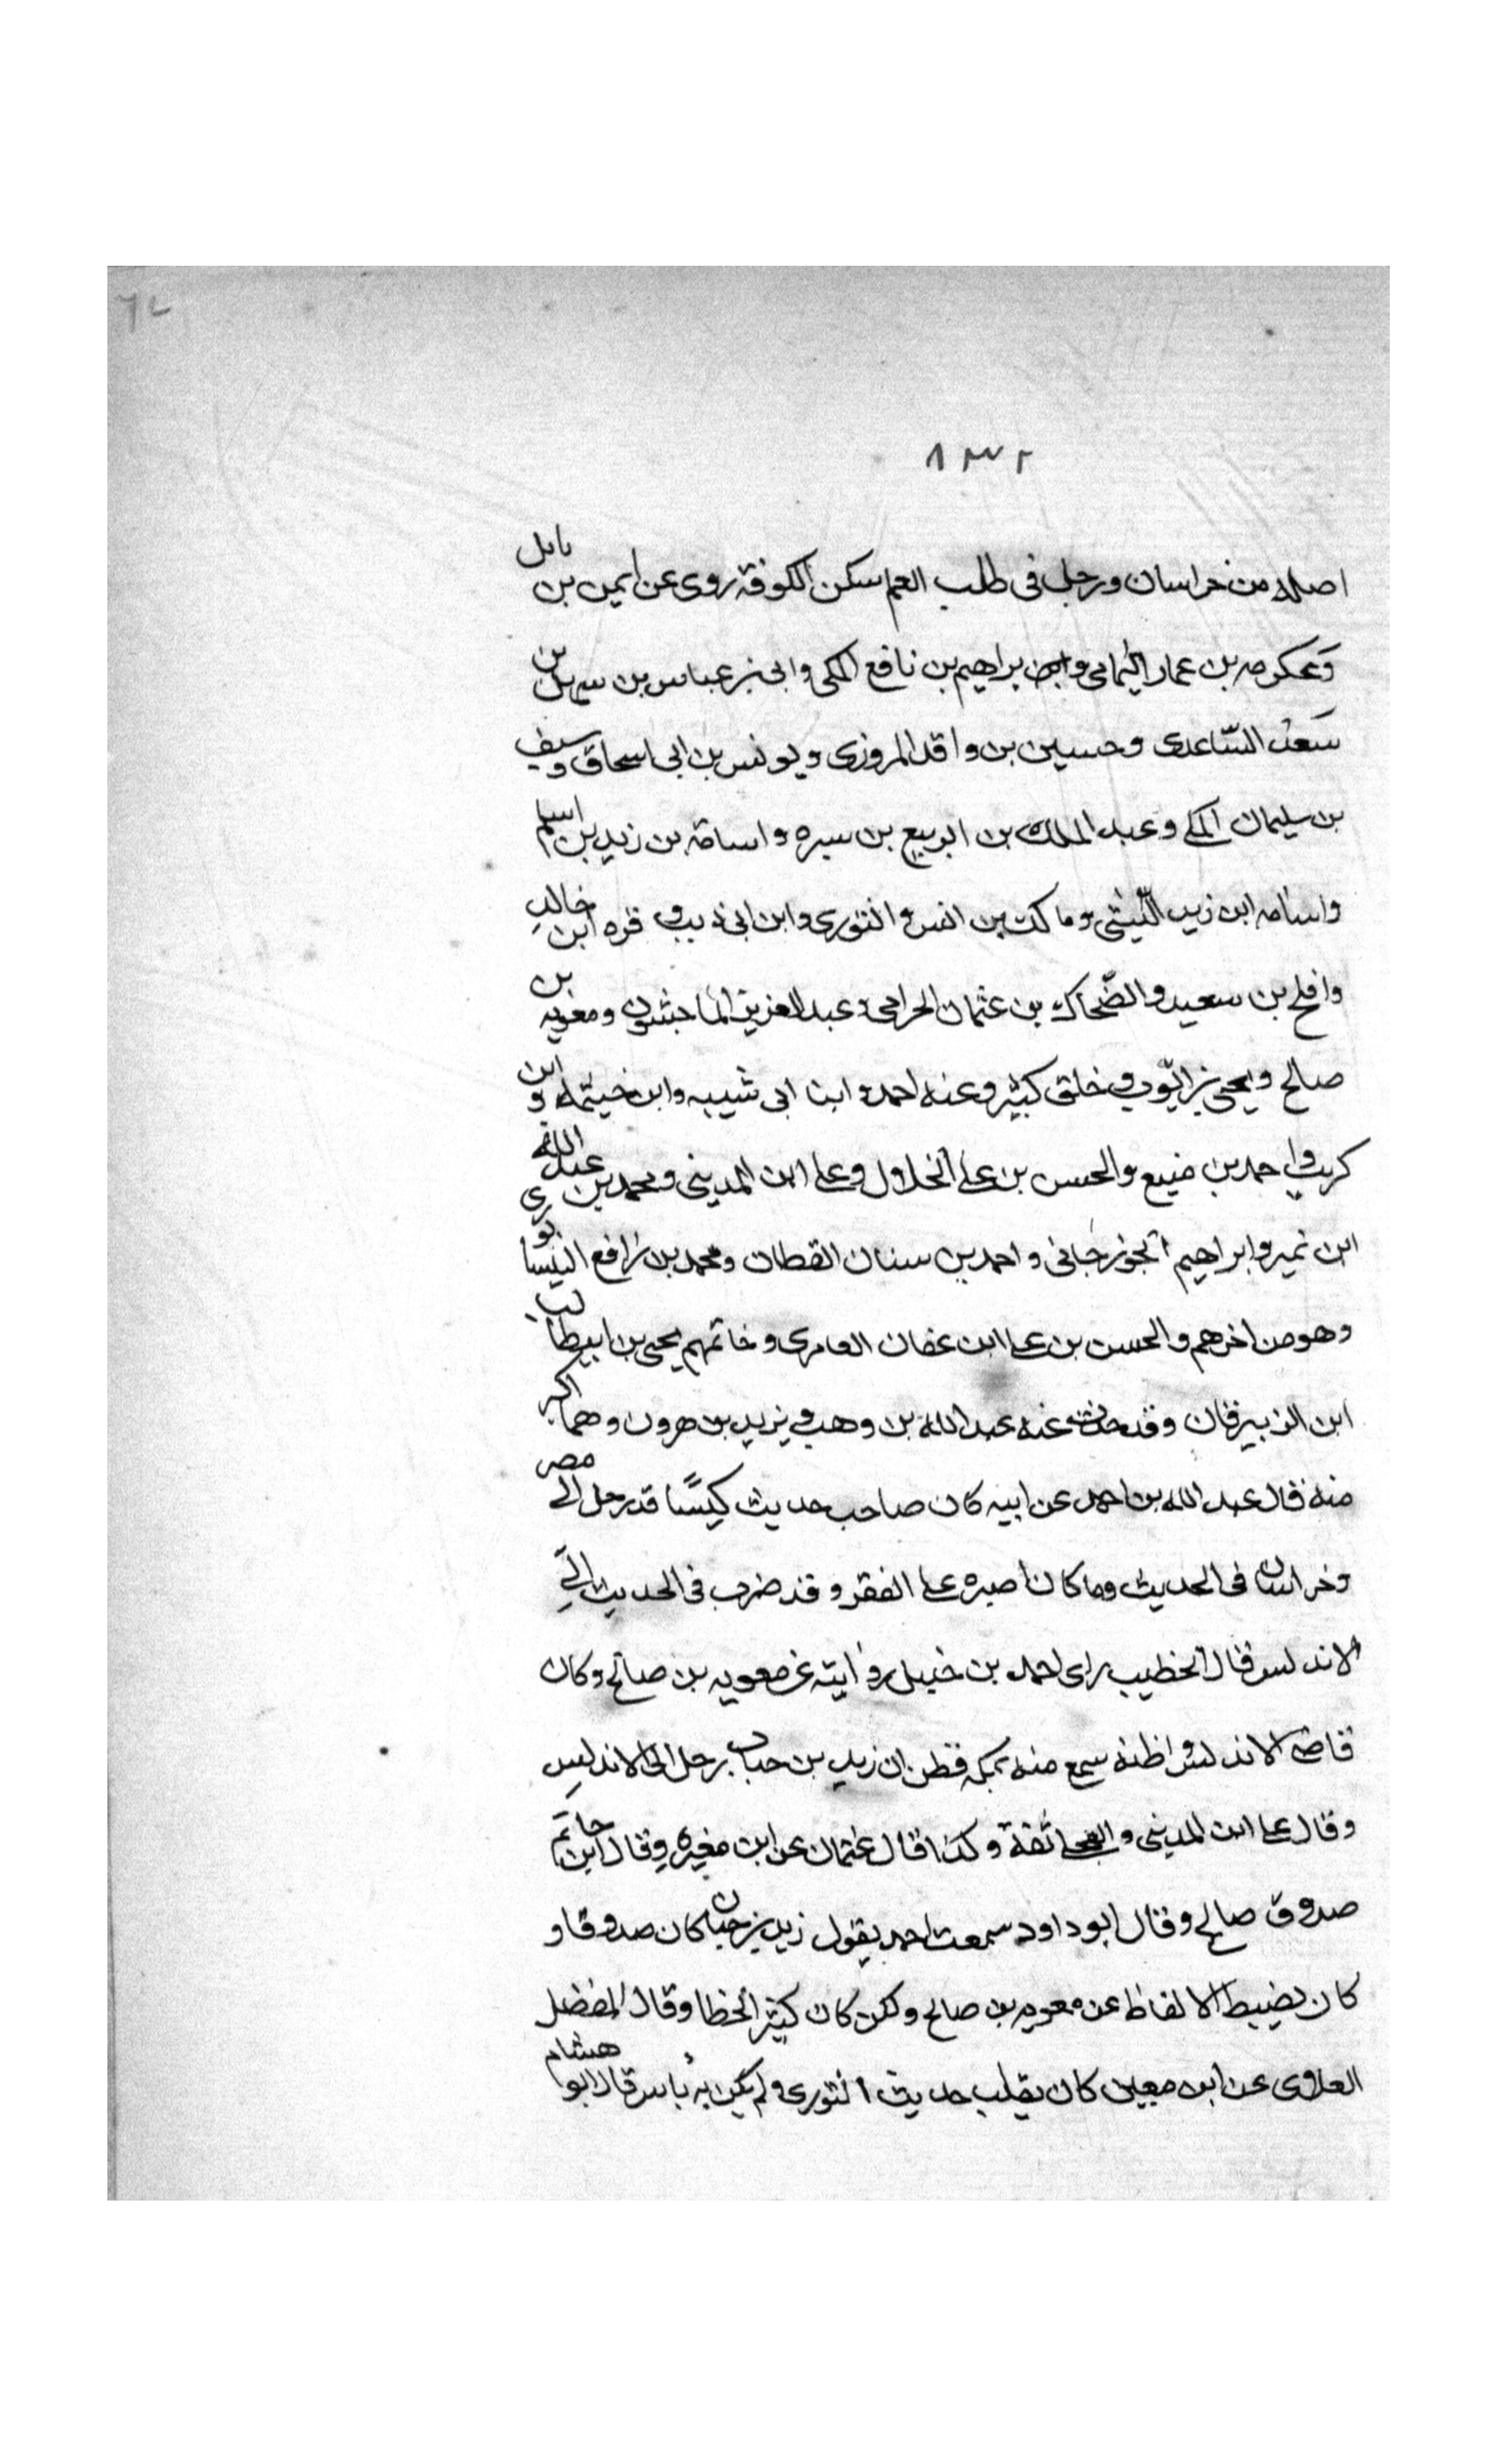 ٦٤
٨٣٢
اصله من خراسان ورحل فى طلب العلم سكن الكوفة روى عن ايمن بن نابل
وعكرمه بن عمار اليمامى وابراهيم بن نافع المكى وابى بن عباس بن سهل بن
سعد الساعدى وحسين بن واقد المروزى ويونس بن ابى اسحاق وسيف
بن سليمان المكى وعبد الملك بن الربيع بن سبره واسامة بن زيد بن اسلم
واسامه ابن زيد الليثى ومالك بن انس والثورى وابن ابى ذيب و قره ابن خالد
وافلح بن سعيد والضحاك بن عثمان الحزامى وعبد العزيز الماجشون ومعويه بن
صالح ويحيى بن ايوب وخلق كثير وعنه احمد وابنا ابى شيبه وابن خيثمه و ابن
كريب واحمد بن منيع والحسن بن على الخلال وعلى ابن المدينى ومحمد بن عبد الله
ابن نمير وابراهيم الجوزجانى واحمد بن سنان القطان ومحمد بن رافع النيسابورى
وهو من اخرهم والحسن بن على ابن عفان العامرى وخاتمهم يحيى بن ابيطالب
ابن الزبيرقان وقد حدث عنه عبد الله بن وهب ويزيد بن هرون وهما اكبر
منه قال عبد الله بن احمد عن ابيه كان صاحب حديث كيسًا قد رحل الى مصر
وخراسان فى الحديث وما كان اصبره على الفقر وقد ضرب فى الحديث الى
الاندلس قال الخطيب راى احمد بن حنبل روايته عن معويه بن صالح وكان
قاضى الاندلس واظنه سمع منه بمكه فظن ان زيد بن حباب رحل الى الاندلس
وقال على ابن المدينى والعجلى ثقة وكذا قال عثمان عن ابن مغيره وقال ابن حاتم
صدوق صالح وقال ابو داود سمعت احمد يقول زيد بن حبان كان صدوقا و
كان يضبط الالفاظ عن معويه بن صالح ولكن كان كثير الخطا وقال المفضل
العلاوى عن ابن معين كان يقلب حديث الثورى ولم يكن به باس قال ابو هشام